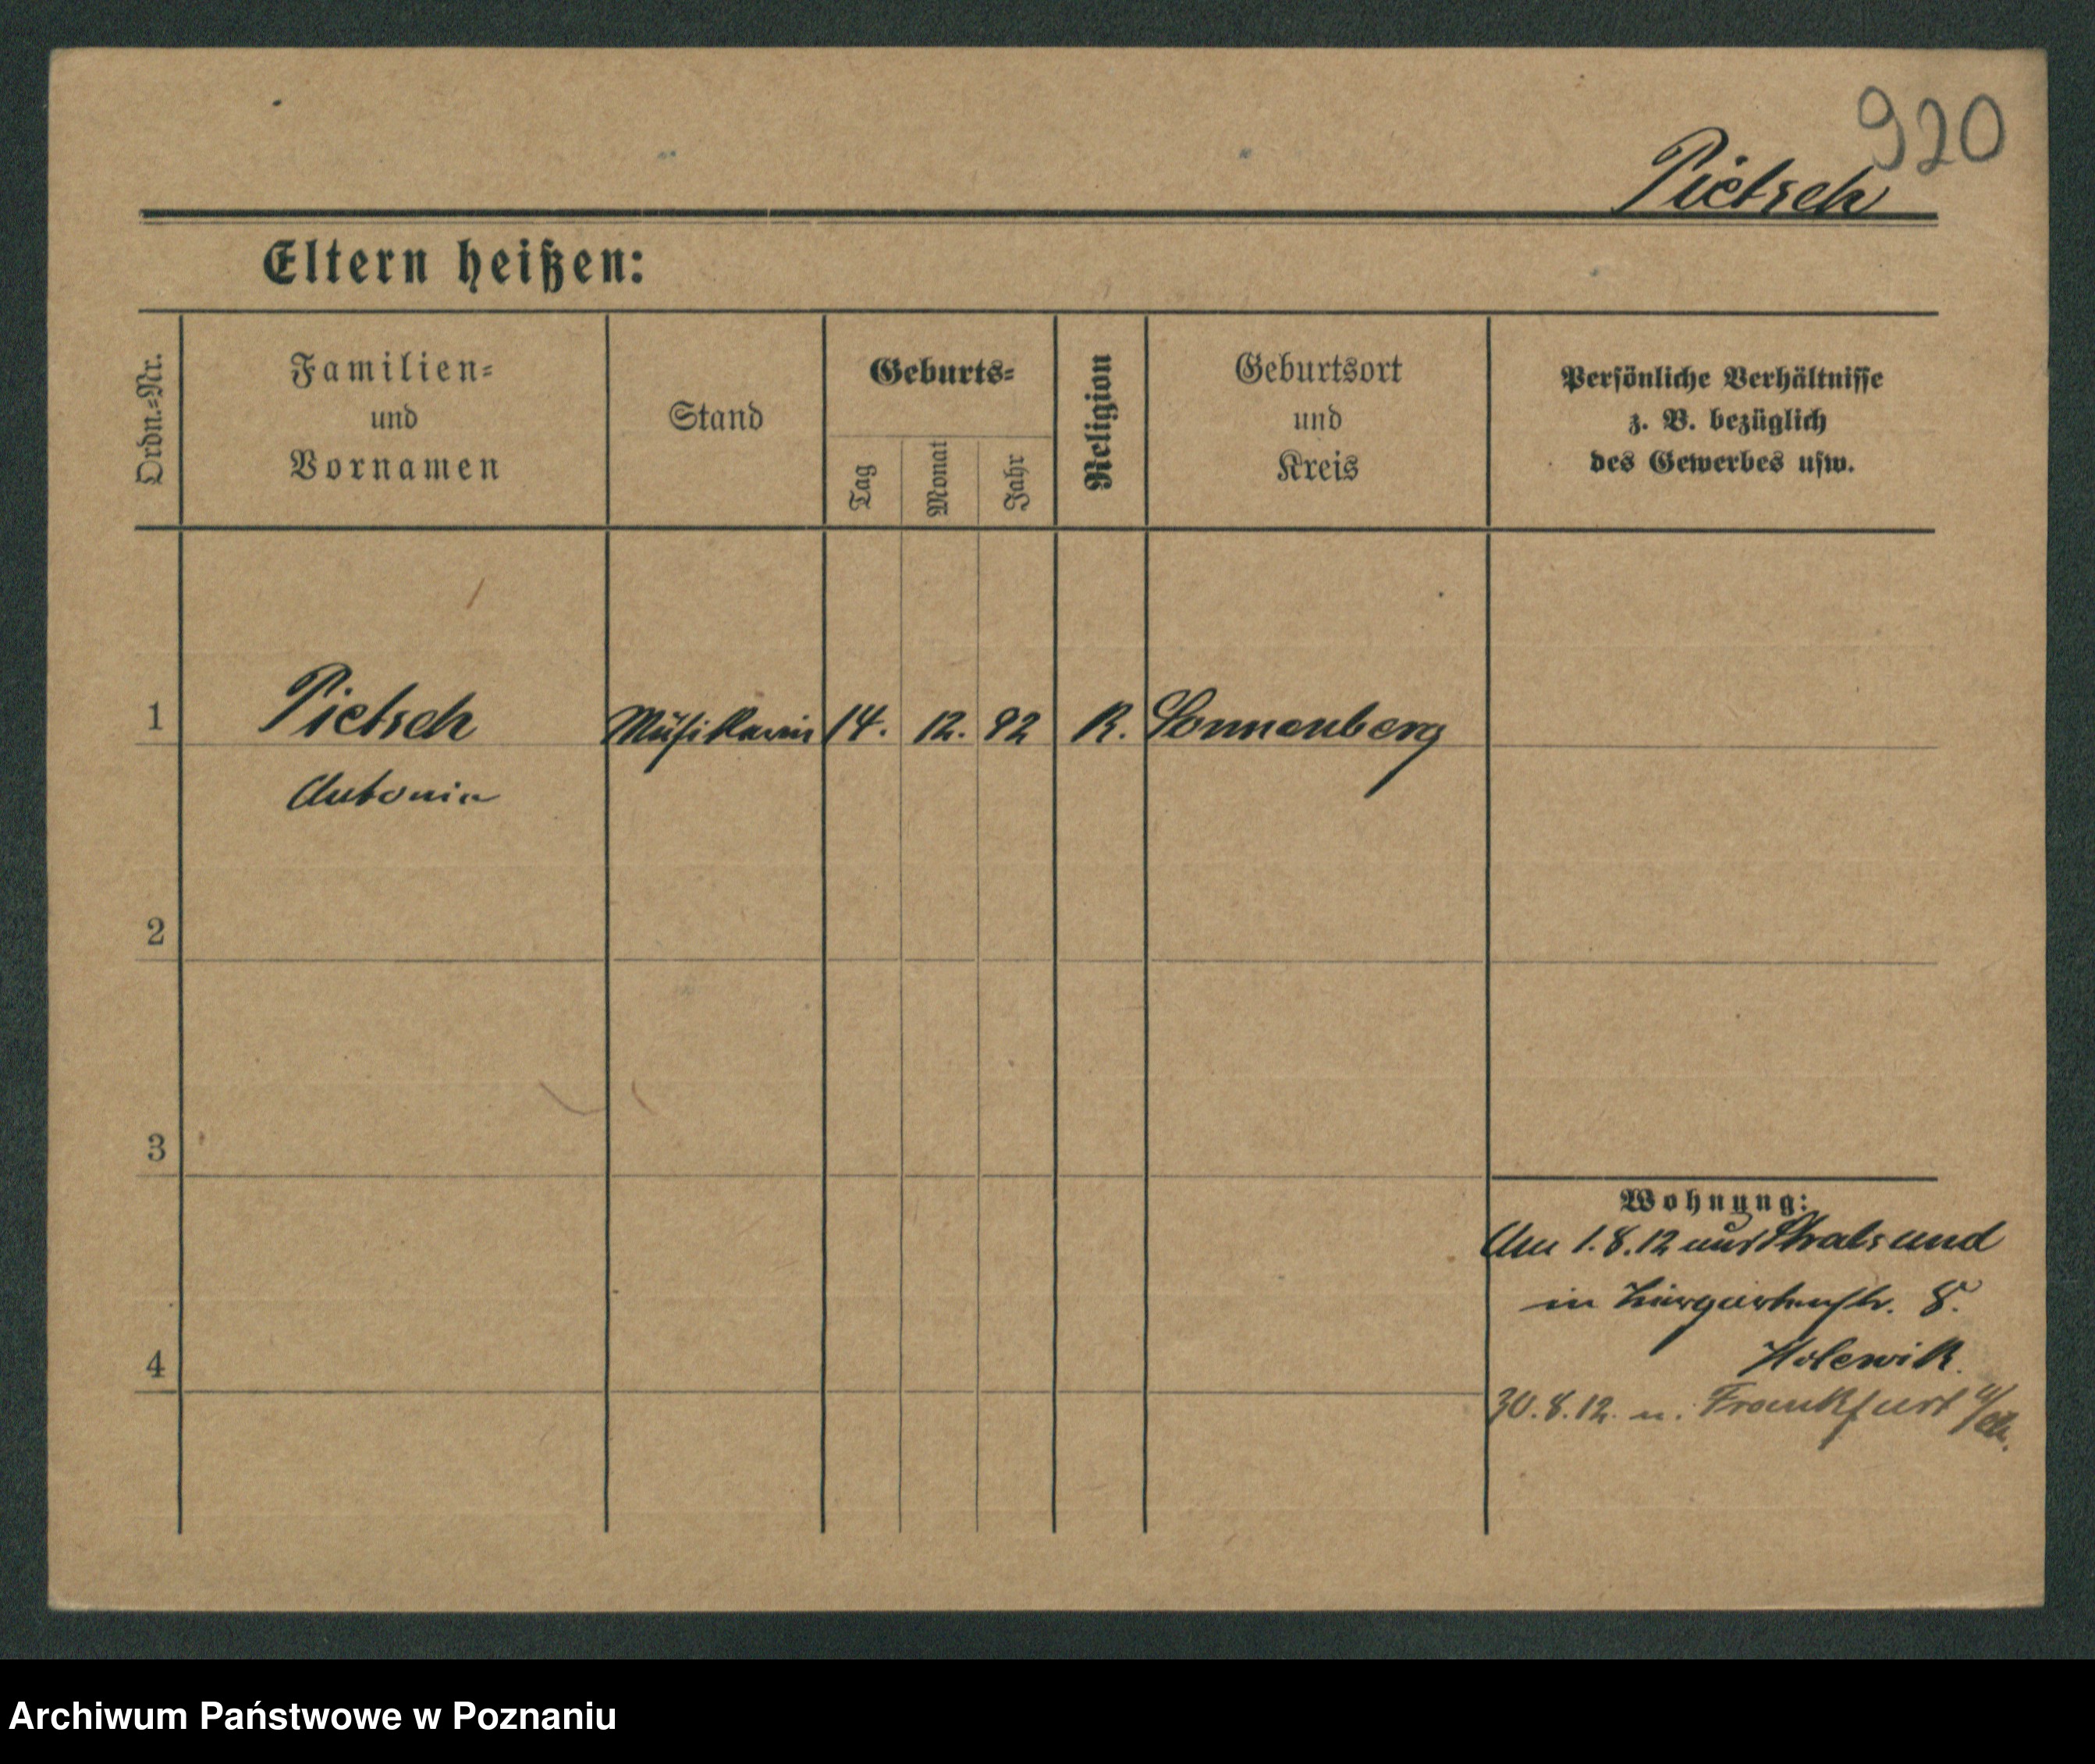 920
Pietsch
Eltern heißen:
Ordn.=Nr.
Familien=
und
Vornamen
Stand
Geburts=
Tag
Monat
Jahr
Religion
Geburtsort
und
Kreis
Persönliche Verhältnisse
z. B. bezüglich
des Gewerbes usw.
1 Pietsch Musikerin 14. 12. 92 K. Sonnenberg
Antonia
2
3
Wohnung:
Am 1.8.12 aus Stralsund
in 8.
4
30.8.12. n. Frankfurt
Archiwum Państwowe w Poznaniu